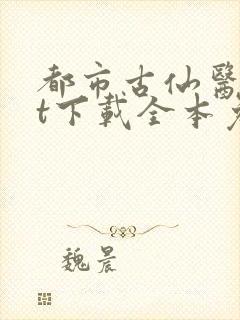 都市古仙醫
t下載全本
魏晨